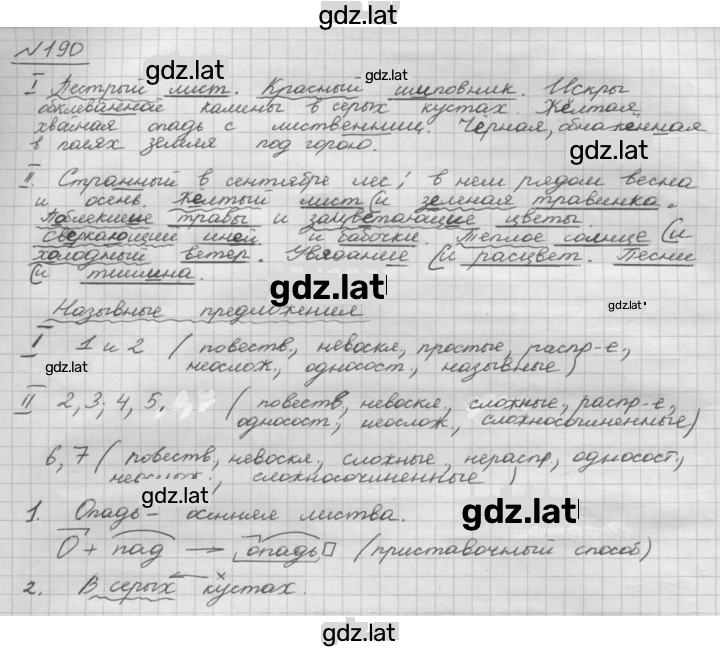 gdz.lat
№190
gdz.lat
gdz.lat
I Пестрый лист. Красный шиповник. Искры
обклеванной калины в серых кустах. Жёлтая
хвойная опадь с лиственниц. Чёрная, обнажённая
gdz.lat
в полях земля под горою.
II. Странный в сентябре лес; в нем рядом весна
и осень. Желтый лист и зеленая травинка.
Поблекшие травы и зацветающие цветы.
Сверкающий иней и бабочки. Теплое солнце (и
холодный ветер. Увядание (и расцвет. Песни
(и тишина.
gdz.lat
Назывные предложения
gdz.lat
I 1 и 2 (повеств., невоскл., простые, распр-е,
gdz.lat
неослож., односост., назывные)
II 2, 3; 4, 5, (повеств., невоскл., сложные, распр-е,
односост., неослож., сложносочиненные)
6, 7 (повеств., невоскл., сложные, нераспр., односост.,
неослож., сложносочиненные)
gdz.lat
1. Опадь - осенняя листва.
gdz.lat
О + пад → опадь (приставочный способ)
2. В серых кустах.
gdz.lat